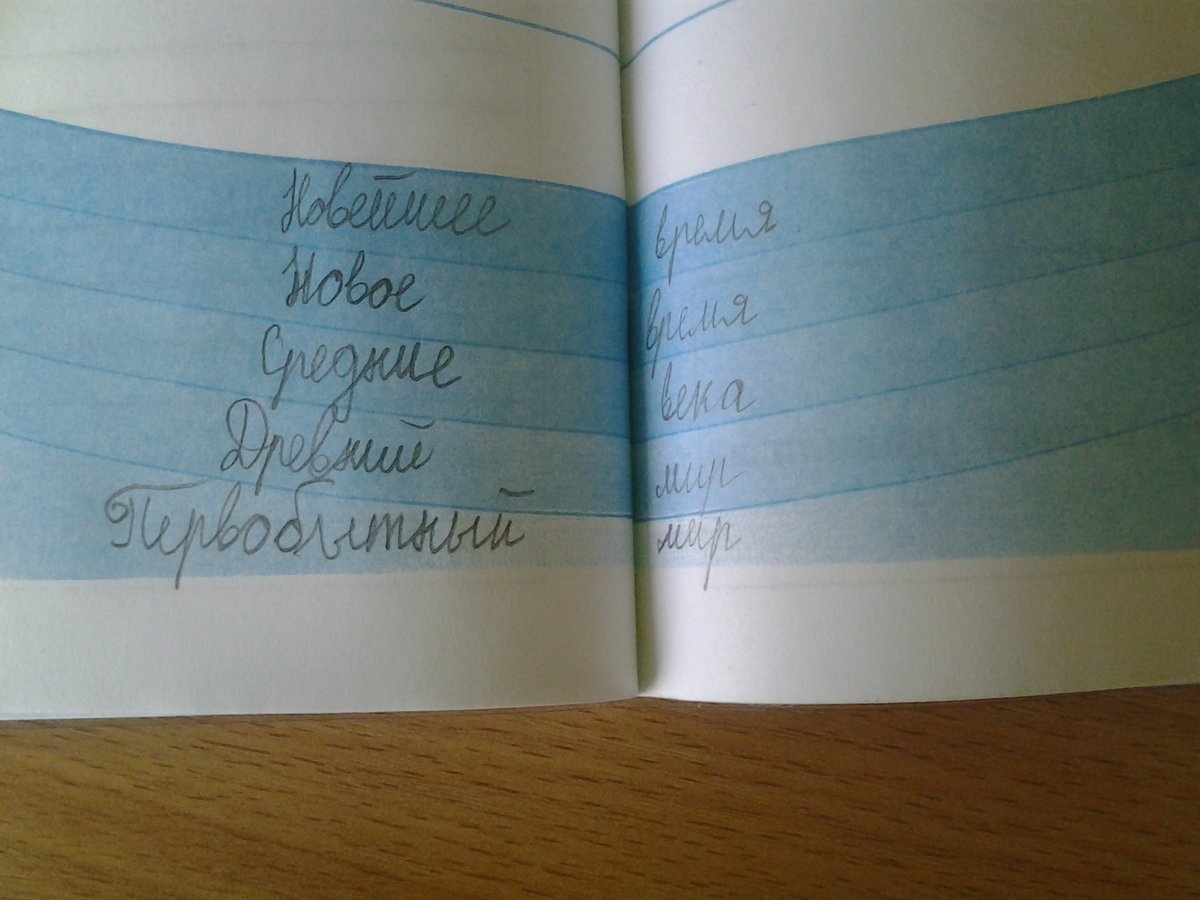 Новейшее время
Новое время
Средние века
Древний мир
Первобытный мир